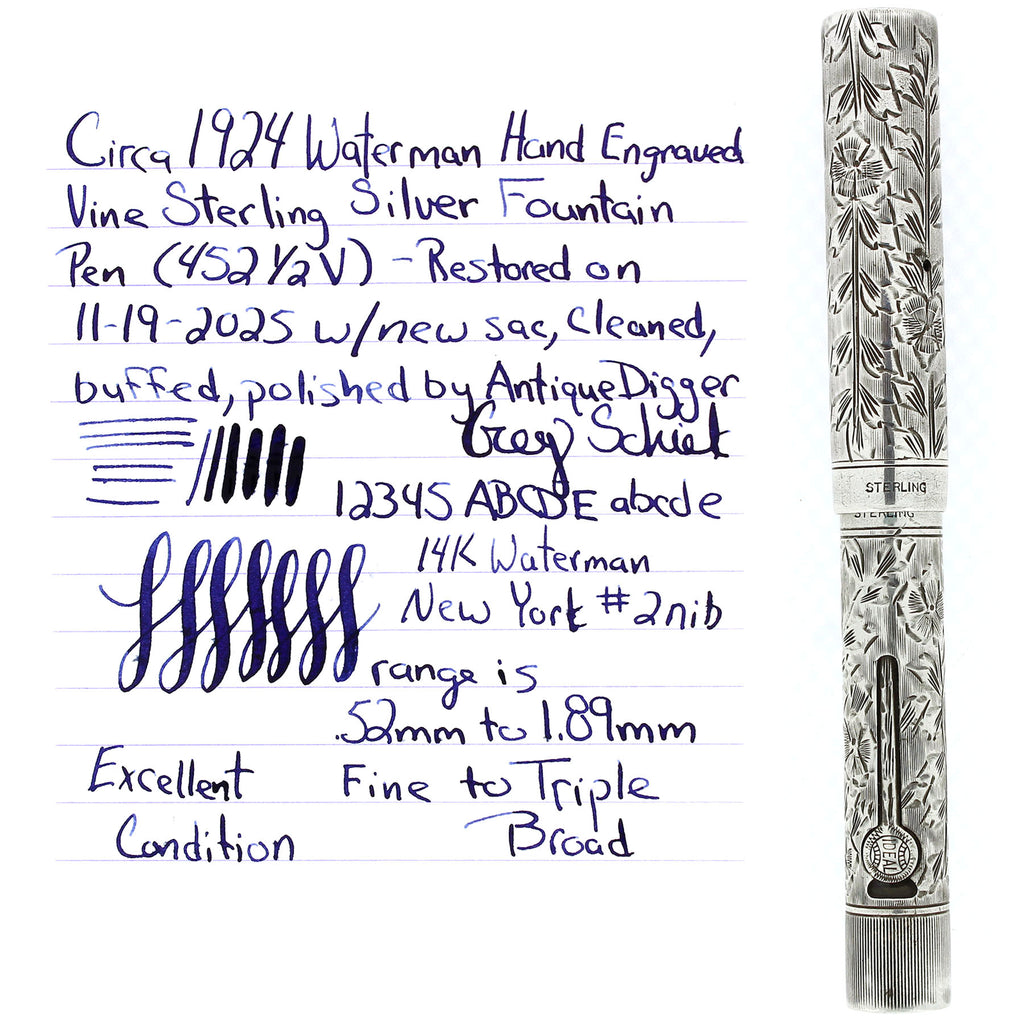 Circa 1924 Waterman Hand Engraved
Vine Sterling Silver Fountain
Pen (452 1/2 V) - Restored on
11-19-2025 w/new sac, Cleaned,
buffed, polished by AntiqueDigger
12345 ABCDE abcde
14K Waterman
New York #2 nib
range is
.52mm to 1.89mm
Excellent Fine to Triple
Condition Broad
STERLING
STERLING
IDEAL